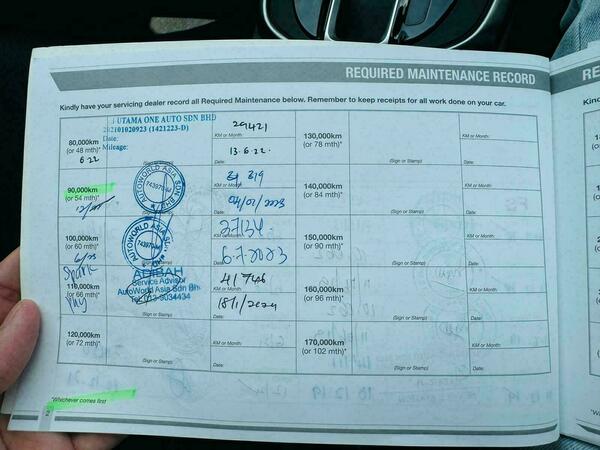 REQUIRED MAINTENANCE RECORD
Kindly have your servicing dealer record all Required Maintenance below. Remember to keep receipts for all work done on your car.
UTAMA ONE AUTO SDN BHD
(1421223-D)
Date:
Mileage:
80,000km
(or 48 mth)*
6.22
(Sign or Stamp)
29421
KM or Month:
13.6.22.
Date:
130,000km
(or 78 mth)*
(Sign or Stamp)
KM or Month:
Date:
90,000km
(or 54 mth)*
AUTOWORLD ASIA SDN BHD
KM or Month:
04/01/2023
Date:
140,000km
(or 84 mth)*
(Sign or Stamp)
KM or Month:
Date:
100,000km
(or 60 mth)*
6/23
AUTOWORLD ASIA
KM or Month:
6.7.2023
Date:
150,000km
(or 90 mth)*
(Sign or Stamp)
KM or Month:
Date:
Spark
plug
110,000km
(or 66 mth)*
ADIBAH
Service Advisor
AutoWorld Asia Sdn Bhd
41746
KM or Month:
Date:
160,000km
(or 96 mth)*
(Sign or Stamp)
KM or Month:
Date:
120,000km
(or 72 mth)*
(Sign or Stamp)
KM or Month:
Date:
170,000km
(or 102 mth)*
(Sign or Stamp)
KM or Month:
Date:
*Whichever comes first